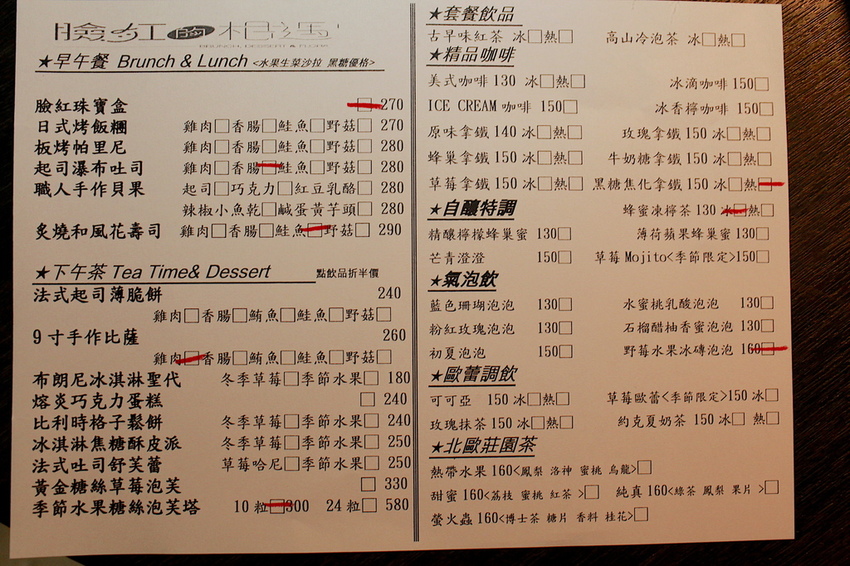 臉紅的相遇
BRUNCH, DESSERT & FLORIST
★早午餐 Brunch & Lunch <水果生菜沙拉 黑糖優格>
臉紅珠寶盒 □270
日式烤飯糰 雞肉□香腸□鮭魚□野菇□ 270
板烤帕里尼 雞肉□香腸□鮭魚□野菇□ 280
起司瀑布吐司 雞肉□香腸□鮭魚□野菇□ 280
職人手作貝果 起司□巧克力□紅豆乳酪□ 280
辣椒小魚乾□鹹蛋黃芋頭□ 280
炙燒和風花壽司 雞肉□香腸□鮭魚□野菇□ 290
★下午茶 Tea Time& Dessert 點飲品折半價
法式起司薄脆餅 240
雞肉□香腸□鮪魚□鮭魚□野菇□
9寸手作比薩 260
雞肉□香腸□鮪魚□鮭魚□野菇□
布朗尼冰淇淋聖代 冬季草莓□季節水果□ 180
熔炎巧克力蛋糕 □ 240
比利時格子鬆餅 冬季草莓□季節水果□ 240
冰淇淋焦糖酥皮派 冬季草莓□季節水果□ 250
法式吐司舒芙蕾 草莓哈尼□季節水果□ 250
黃金糖絲草莓泡芙 □ 330
季節水果糖絲泡芙塔 10粒□300 24粒□ 580
★套餐飲品
古早味紅茶 冰□熱□ 高山冷泡茶 冰□熱□
★精品咖啡
美式咖啡 130 冰□熱□ 冰滴咖啡 150□
ICE CREAM 咖啡 150□ 冰香檸咖啡 150□
原味拿鐵 140 冰□熱□ 玫瑰拿鐵 150 冰□熱□
蜂巢拿鐵 150 冰□熱□ 牛奶糖拿鐵 150 冰□熱□
草莓拿鐵 150 冰□熱□ 黑糖焦化拿鐵 150 冰□熱□
★自釀特調 蜂蜜凍檸茶 130 冰□熱□
精釀檸檬蜂巢蜜 130□ 薄荷蘋果蜂巢蜜 130□
芒青澄澄 150□ 草莓Mojito<季節限定>150□
★氣泡飲
藍色珊瑚泡泡 130□ 水蜜桃乳酸泡泡 130□
粉紅玫瑰泡泡 130□ 石榴醋柚香蜜泡泡 130□
初夏泡泡 150□ 野莓水果冰磚泡泡 160□
★歐蕾調飲
可可亞 150 冰□熱□ 草莓歐蕾<季節限定>150 冰□
玫瑰抹茶 150 冰□熱□ 約克夏奶茶 150 冰□ 熱□
★北歐莊園茶
熱帶水果 160<鳳梨 洛神 蜜桃 烏龍>□
甜蜜 160<荔枝 蜜桃 紅茶 >□ 純真 160<綠茶 鳳梨 果片 >□
螢火蟲 160<博士茶 糖片 香料 桂花>□